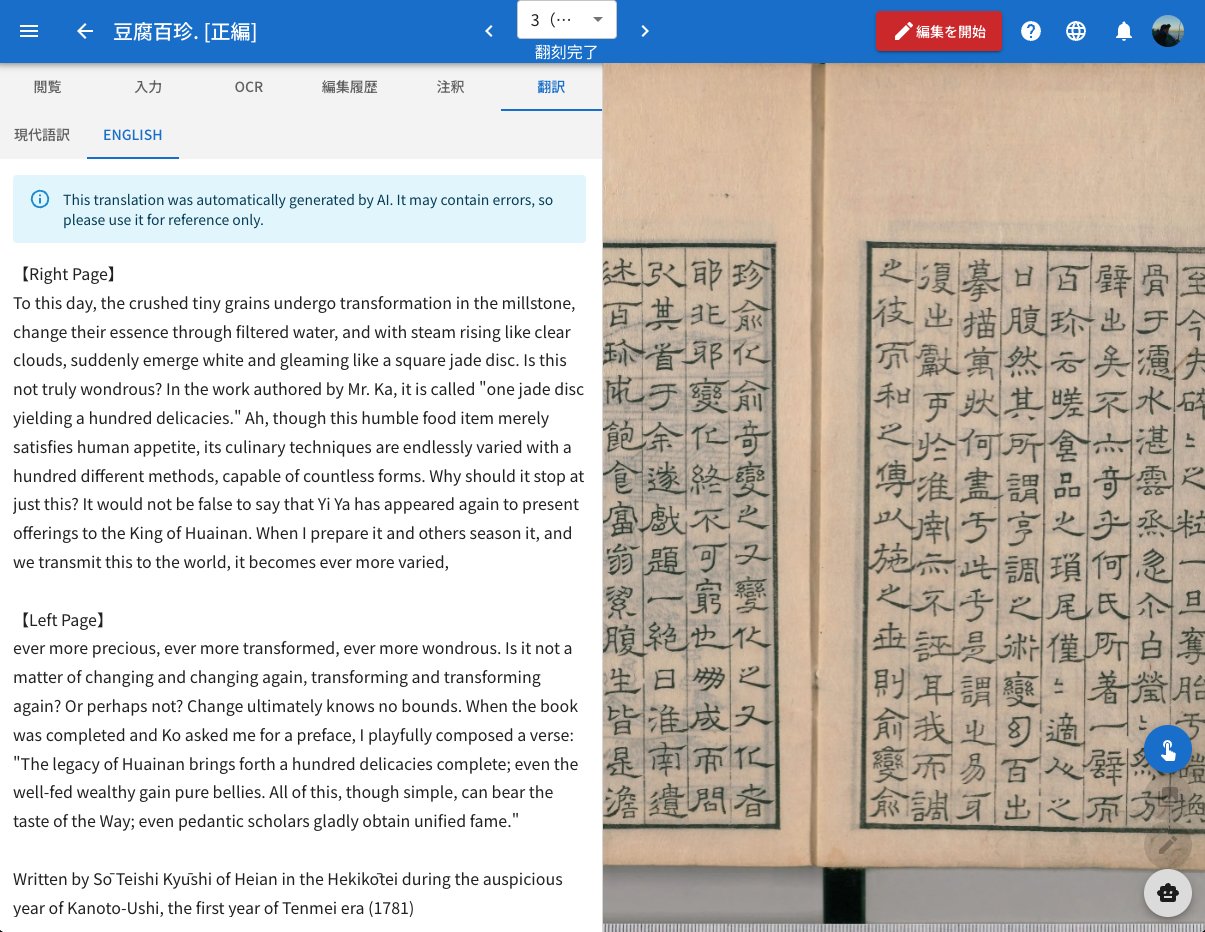 豆腐百珍. [正編]
3（…
翻刻完了
編集を開始
閲覧
入力
OCR
編集履歴
注釈
翻訳
現代語訳
ENGLISH
This translation was automatically generated by AI. It may contain errors, so
please use it for reference only.
【Right Page】
To this day, the crushed tiny grains undergo transformation in the millstone,
change their essence through filtered water, and with steam rising like clear
clouds, suddenly emerge white and gleaming like a square jade disc. Is this
not truly wondrous? In the work authored by Mr. Ka, it is called "one jade disc
yielding a hundred delicacies." Ah, though this humble food item merely
satisfies human appetite, its culinary techniques are endlessly varied with a
hundred different methods, capable of countless forms. Why should it stop at
just this? It would not be false to say that Yi Ya has appeared again to present
offerings to the King of Huainan. When I prepare it and others season it, and
we transmit this to the world, it becomes ever more varied,
【Left Page】
ever more precious, ever more transformed, ever more wondrous. Is it not a
matter of changing and changing again, transforming and transforming
again? Or perhaps not? Change ultimately knows no bounds. When the book
was completed and Ko asked me for a preface, I playfully composed a verse:
"The legacy of Huainan brings forth a hundred delicacies complete; even the
well-fed wealthy gain pure bellies. All of this, though simple, can bear the
taste of the Way; even pedantic scholars gladly obtain unified fame."
Written by So¯ Teishi Kyu¯shi of Heian in the Hekiko¯tei during the auspicious
year of Kanoto-Ushi, the first year of Tenmei era (1781)
至今夫碎〻之粒一旦奪胎于磑換
骨于漉水湛雲烝忽尒白瑩〻然方
璧出矣不亦奇乎何氏所著一璧而
百珎云嗟食品之瑣尾僅〻適人之
口腹然其所謂亨調之術變幻百出
摹描萬狀何盡于此乎是謂之易牙
復出獻于於淮南亦不誣耳我而調
之彼而和之傳以施之世則俞變俞
珍俞化俞奇變之又變化之又化者
耶非耶變化終不可窮也册成而問
弁其首于余遂戲題一絶曰淮南遺
述百珎飽食富翁潔腹生皆是澹